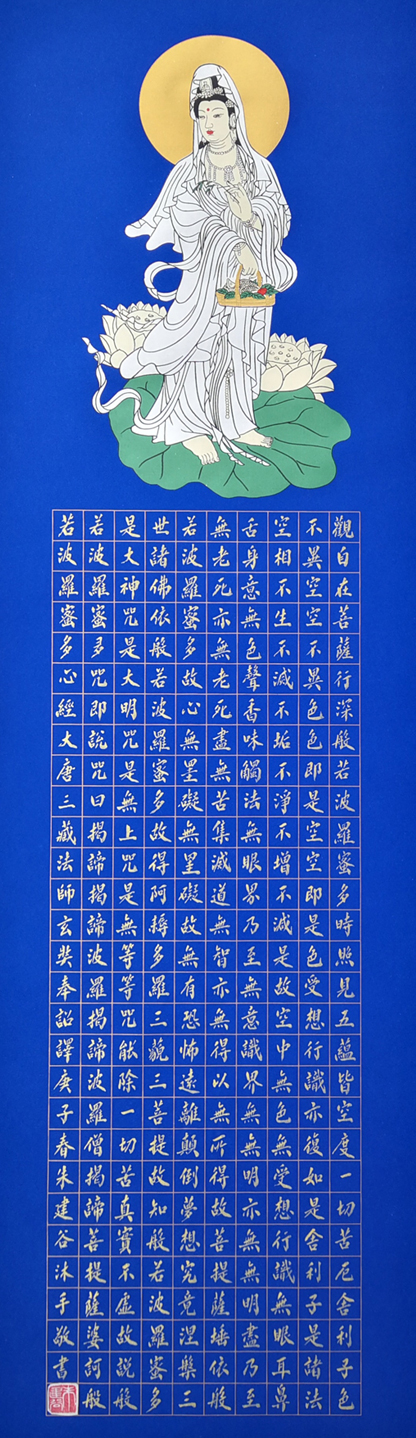 觀自在菩薩行深般若波羅蜜多時照見五蘊皆空度一切苦厄舍利子色
不異空空不異色色即是空空即是色受想行識亦復如是舍利子是諸法
空相不生不滅不垢不淨不增不減是故空中無色無受想行識無眼耳鼻
舌身意無色聲香味觸法無眼界乃至無意識界無無明亦無無明盡乃至
無老死亦無老死盡無苦集滅道無智亦無得以無所得故菩提薩埵依般
若波羅蜜多故心無罣礙無罣礙故無有恐怖遠離顛倒夢想究竟涅槃三
世諸佛依般若波羅蜜多故得阿耨多羅三藐三菩提故知般若波羅蜜多
是大神咒是大明咒是無上咒是無等等咒能除一切苦真實不虛故說般
若波羅蜜多咒即說咒曰揭諦揭諦波羅揭諦波羅僧揭諦菩提薩婆訶般
若波羅蜜多心經大唐三藏法師玄奘奉詔譯庚子春朱建谷沐手敬書